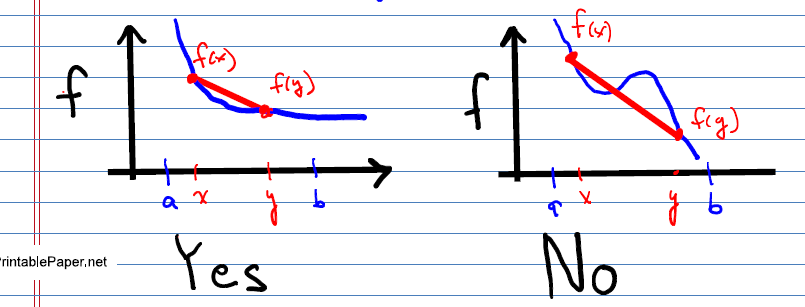 f f(x) f(y)
a x y b
Yes
f f(x) f(y)
a x y b
No
rintablePaper.net